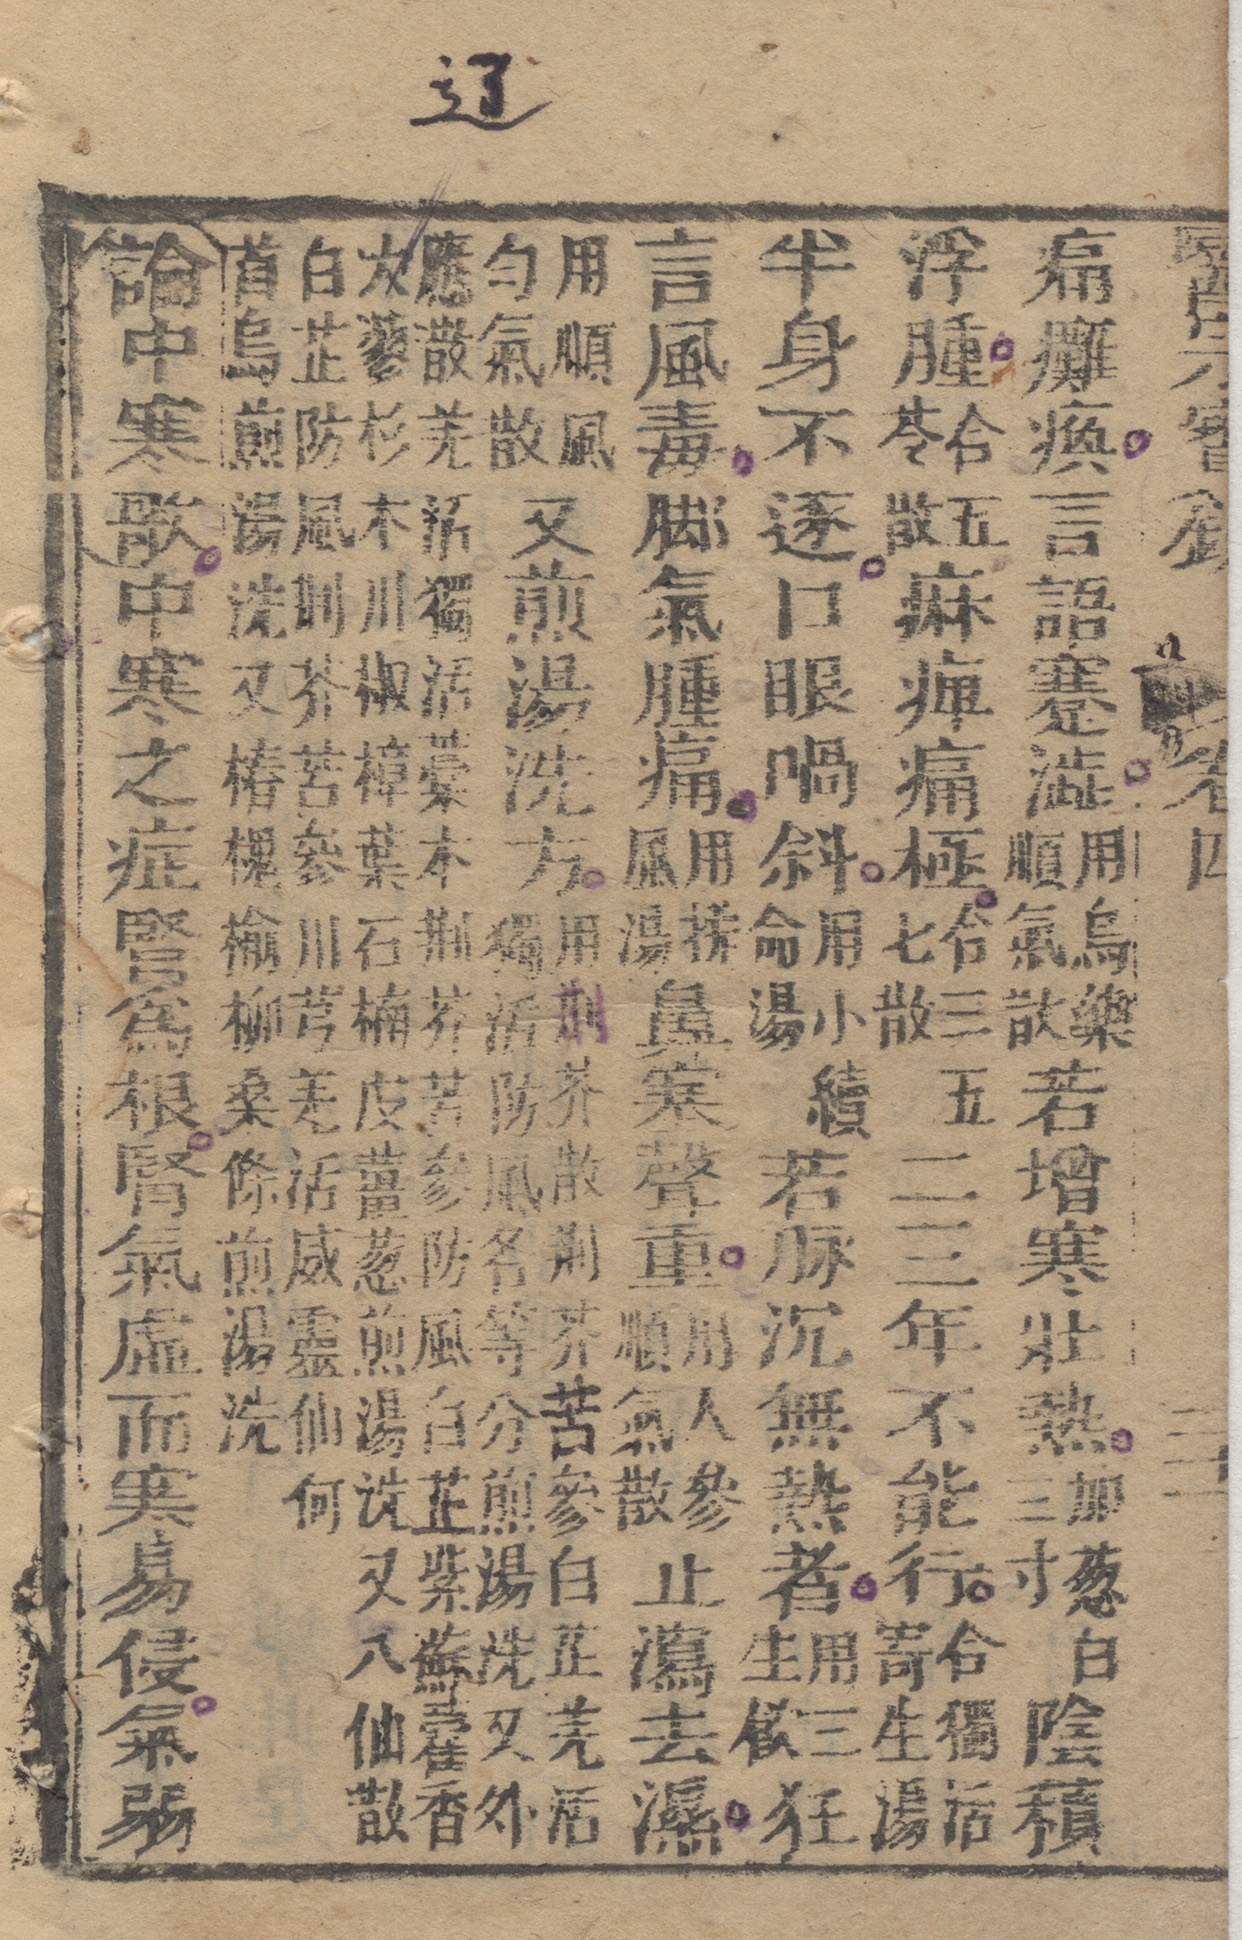 卷四
痛癱瘓言語蹇澁用烏藥順氣散若增寒壯熱加葱白三寸陰積
浮腫合五苓散麻痺痛極合三五七散二三年不能行合獨活寄生湯
半身不逐口眼喎斜用小續命湯若脉沉無熱者用三生飲狂
言風毒脚氣腫痛用搜風湯鼻塞聲重用人參順氣散止瀉去濕
用順風勻氣散又煎湯洗方用荆芥散荆芥苦參白芷羌活獨活防風名等分煎湯洗又外
應散羌活獨活藁本荆芥苦參防風白芷紫蘇藿香
次蓼杉木川椒樟葉石楠皮薑葱煎湯洗又八仙散
白芷防風荆芥苦參川芎羌活威靈仙何
首烏煎湯洗又椿槐楡柳桑條煎湯洗
論中寒歌中寒之症腎為根腎氣虛而寒易侵氣弱